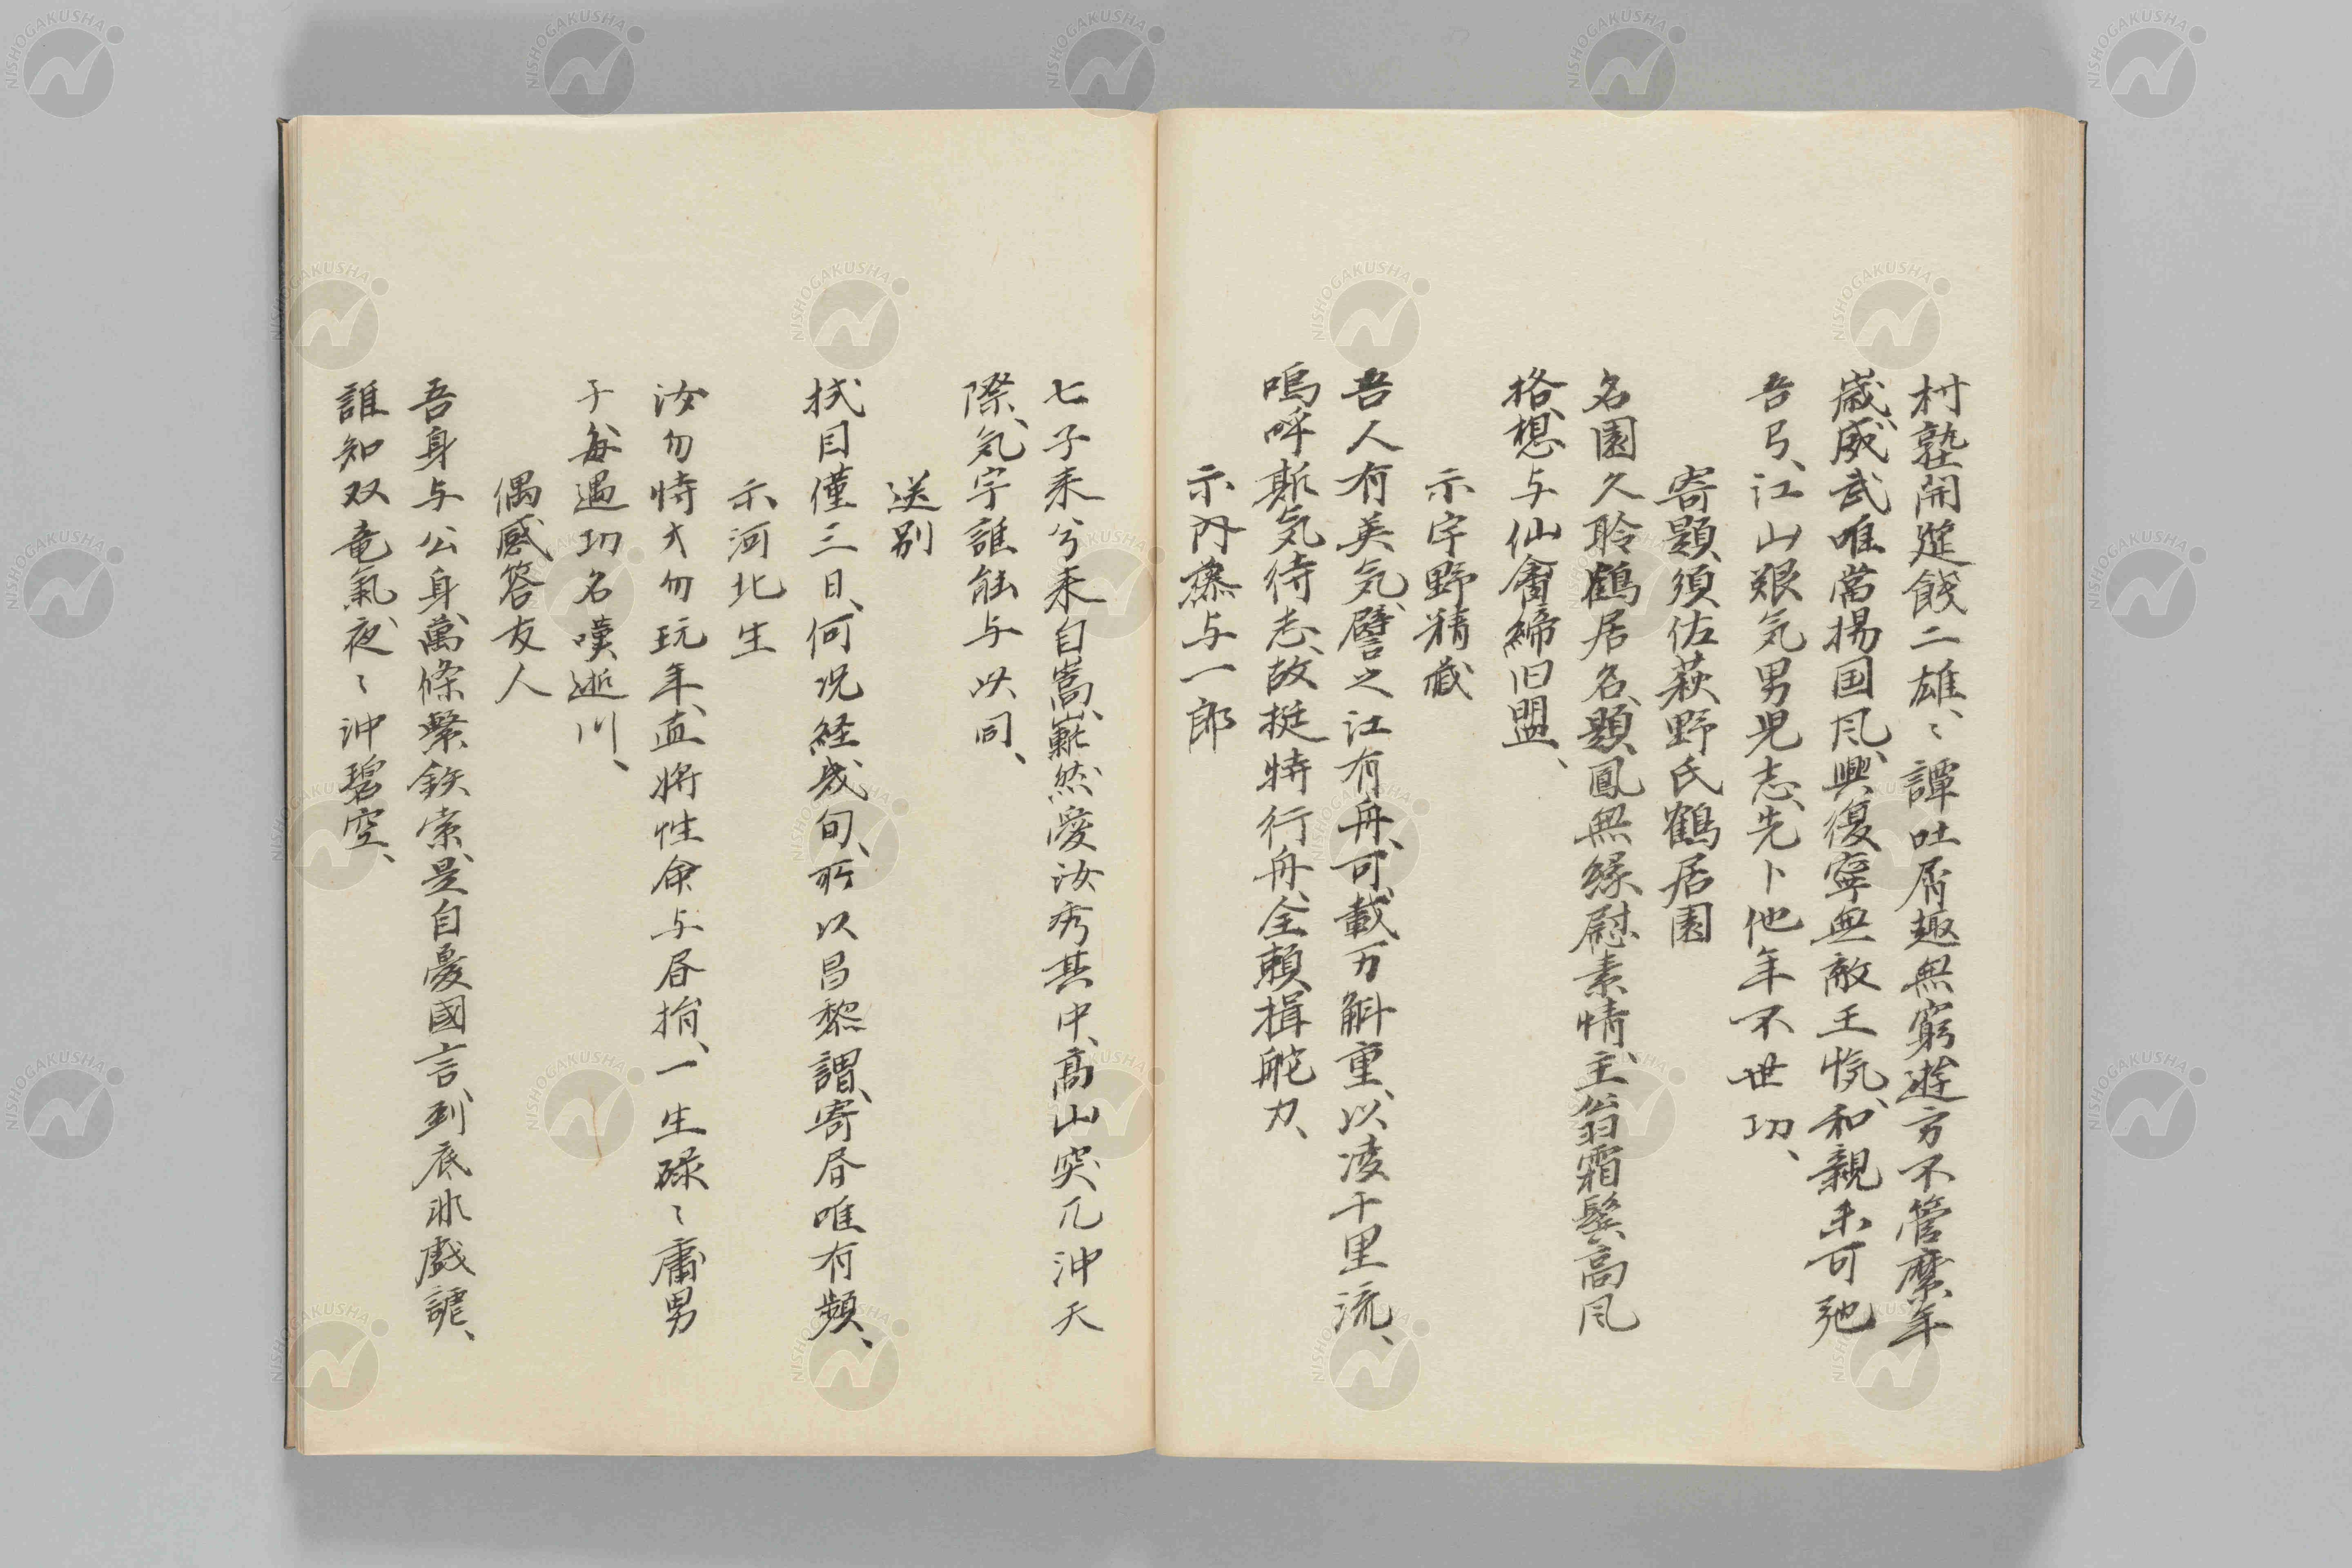 村塾開筵餞二雄、〻譚吐屑趣無窮、遊方不管摩年
歳、威武唯当揚国風、興復寧無敵王愾、和親未可弛
吾弓、江山艱気男児志、先卜他年不世功、
寄題須佐萩野氏鶴居園
名園久聆鶴居名、題鳳無縁慰素情、主翁霜鬢高風
格、想与仙禽締旧盟、
示宇野精蔵
吾人有美気、譬之江有舟、可載万斛重、以凌千里流、
嗚呼斯気待志、故挺特行舟、全頼揖舵力、
示内藤与一郎
七子来兮来自嵩、嶄然愛汝秀其中、高山突兀沖天
際、気宇誰能与以同、
送別
拭目僅三日、何況経幾旬、所以昌黎謂、寄居唯有頻、
示河北生
汝勿恃才勿玩年、直将性命与居捐、一生碌〻庸男
子、毎過功名嘆逝川、
偶感答友人
吾身与公身、萬條繫鉄索、是自憂國言、到底非戯謔、
誰知双竜氣、夜〻沖碧空、
NISHOGAKUSHA